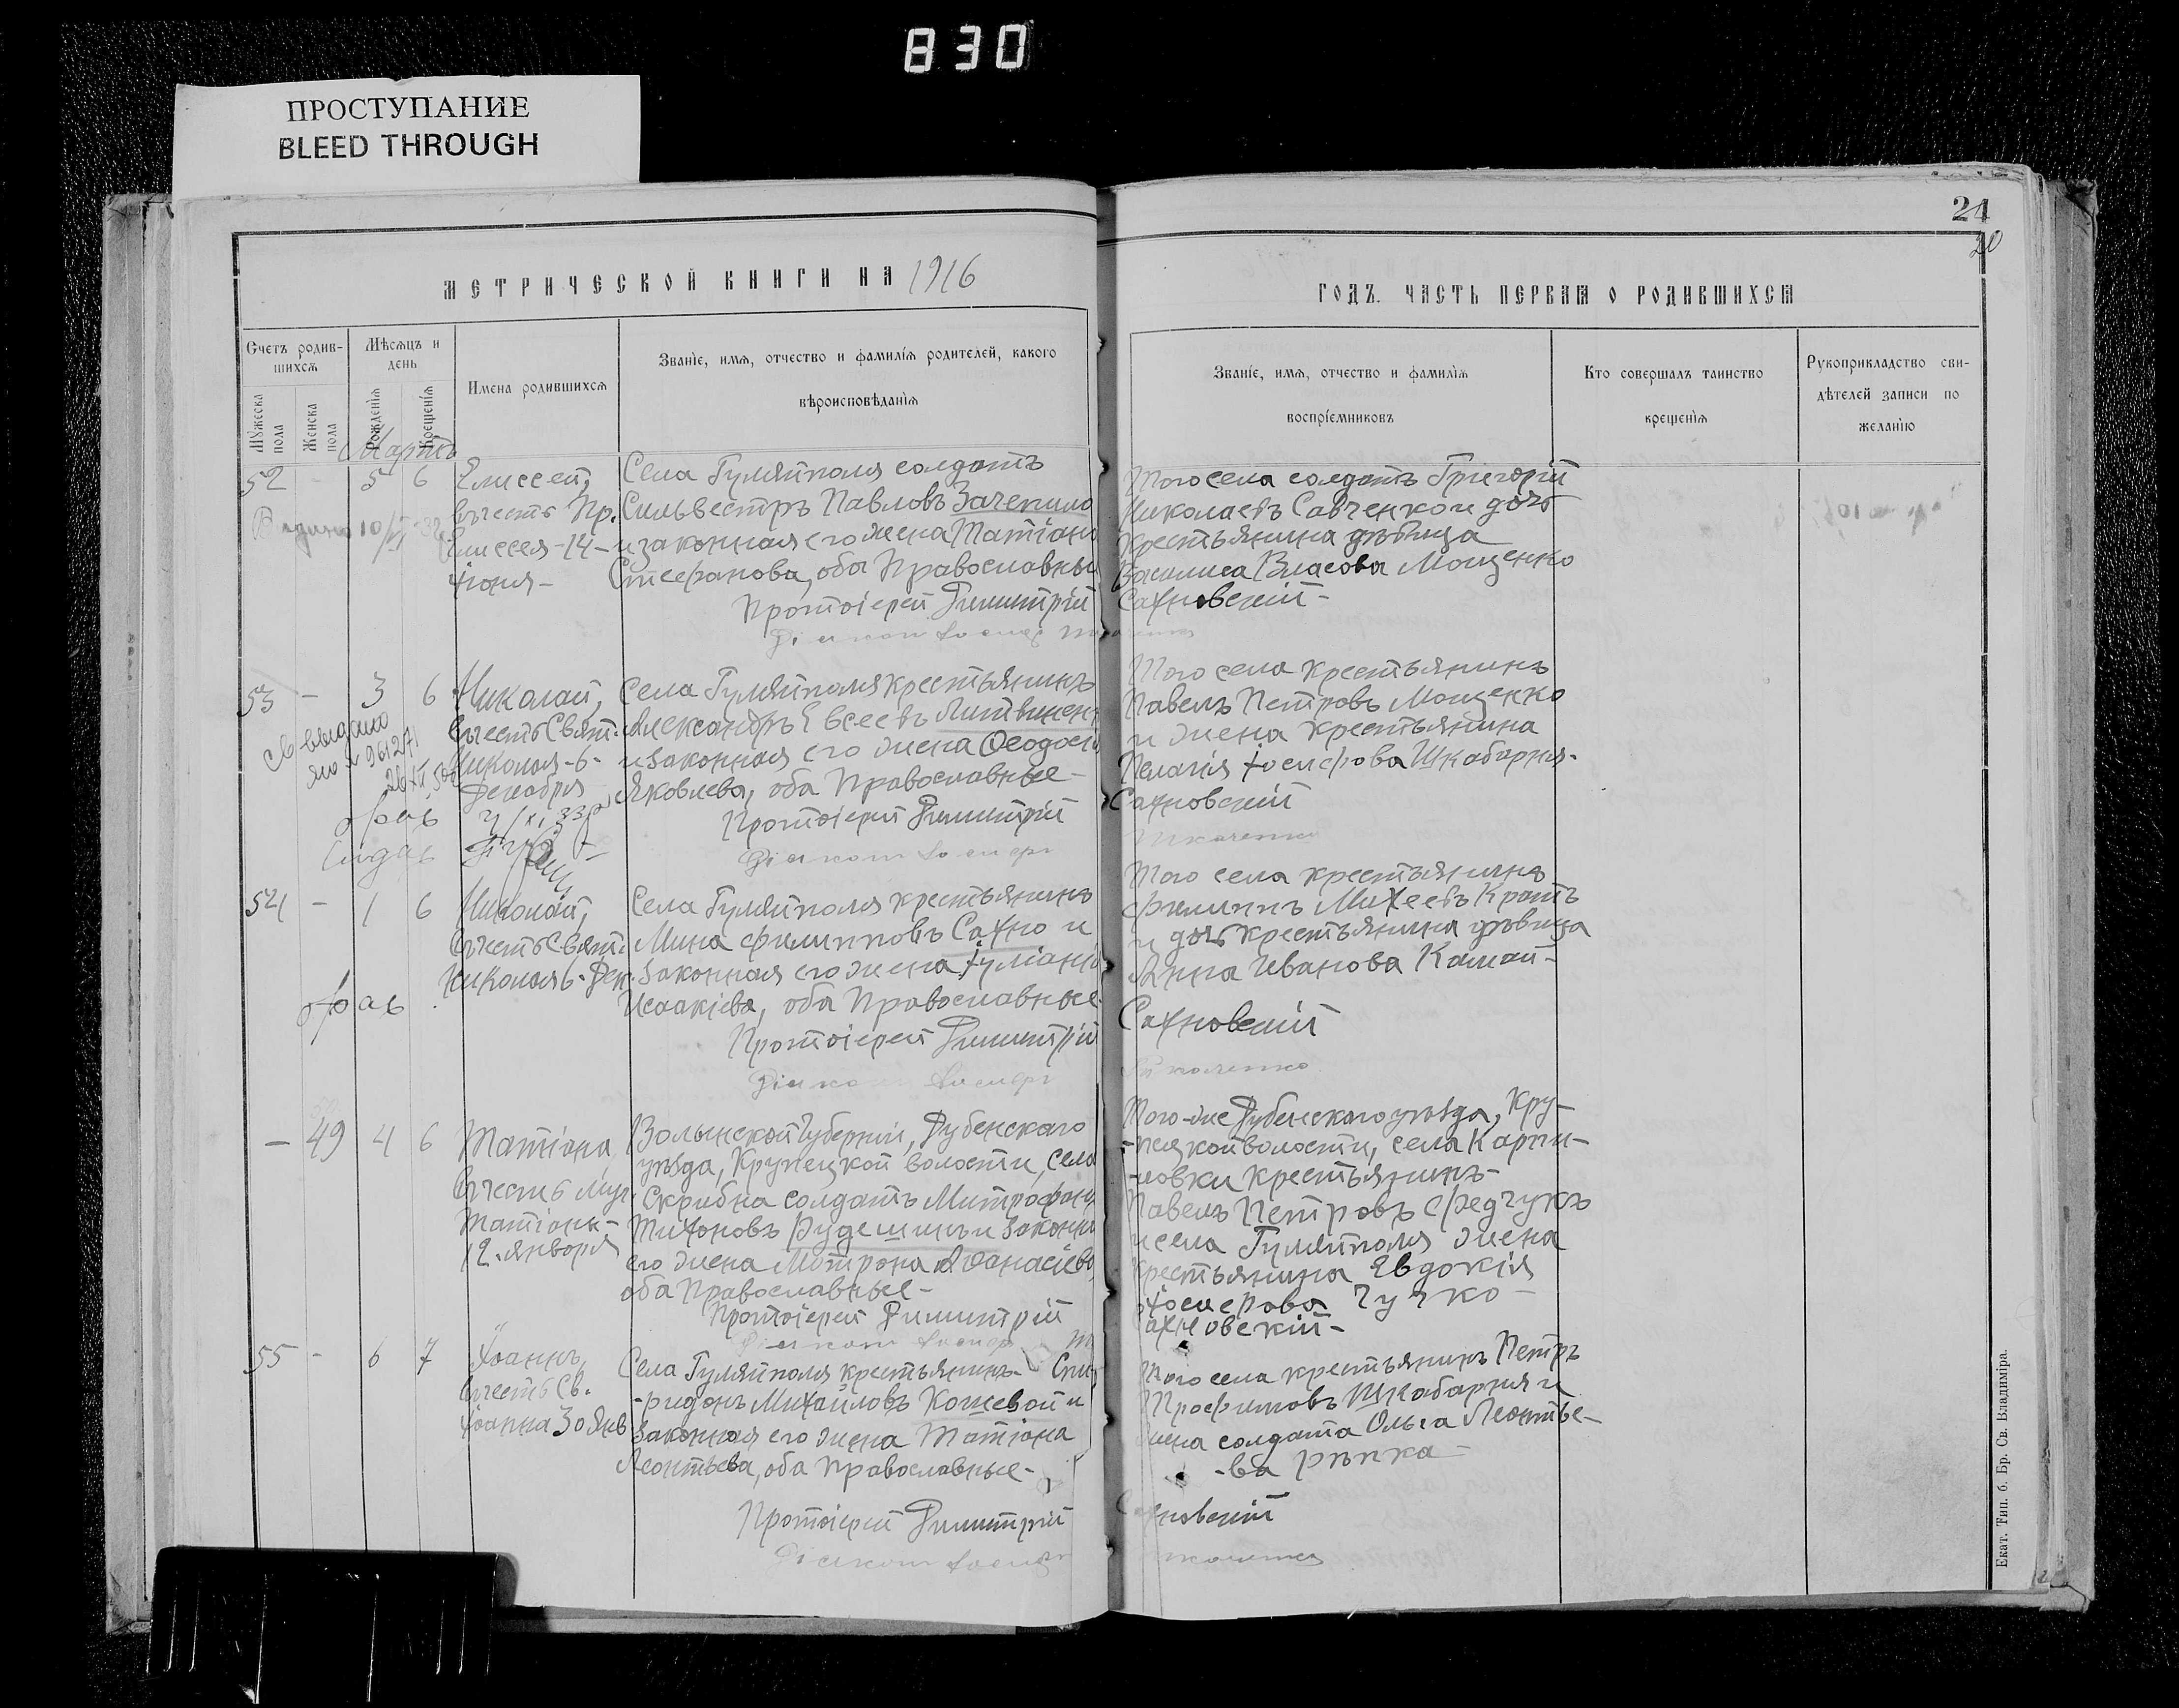 830
ПРОСТУПАНИЕ
BLEED THROUGH
21
20
МЕТРИЧЕСКОЙ КНИГИ НА 1916
ГОДЪ. ЧАСТЬ ПЕРВАЯ О РОДИВШИХСЯ
Счетъ родив-
шихся
Мѣсяцъ и
день
Мужеска пола
Женска пола
Рожденія
Крещенія
Имена родившихся
Званіе, имя, отчество и фамилія родителей, какого
вѣроисповѣданія
Званіе, имя, отчество и фамилія
воспріемниковъ
Кто совершалъ таинство
крещенія
Рукоприкладство сви-
дѣтелей записи по
желанію
Мартъ
52 - 5 6 Елиссей,
въ честь Пр.
Елиссея -14-
Іюня-
Села Гуляйполя солдатъ
Сильвестръ Павловъ Зачепило
и законная его жена Татіана
Стефанова, оба Православные
Протоіерей Димитрій
Діаконъ Іосифъ
Того села солдатъ Григорій
Николаевъ Савченко и дочь
крестьянина дѣвица
Василиса Власова Мощенко
Сахновскій-
53 - 3 6 Николай,
въ честь Свят.
Николая -6-
Декабря
Села Гуляйполя крестьянинъ
Александръ Евсеевъ Литвиненко
и законная его жена Феодосія
Яковлева, оба Православные-
Протоіерей Димитрій
Діаконъ Іосифъ
Того села крестьянинъ
Павелъ Петровъ Мощенко
и жена крестьянина
Пелагія Іосифова Шкабарня-
Сахновскій
Ткаченко
54 - 1 6 Николай,
въ честь Свят.
Николая 6-Дек.
Села Гуляйполя крестьянинъ
Мина Филипповъ Сахно и
законная его жена Іуліанія
Исаакіева, оба Православные-
Протоіерей Димитрій
Діаконъ Іосифъ
Того села крестьянинъ
Филиппъ Михеевъ Кратъ
и дочь крестьянина дѣвица
Анна Иванова Камай-
Сахновскій
Ткаченко
- 49 4 6 Татіана,
въ честь Муч.
Татіаны-
12. января
Волынской губерніи, Дубенскаго
уѣзда, Крупецкой волости, села
солдатъ Митрофанъ
Тихоновъ и законная
его жена Матрона Афанасіева,
оба Православные-
Протоіерей Димитрій
Діаконъ Іосифъ
Того-же Дубенскаго уѣзда, Кру-
-пецкой волости, села Карпи-
-ловки крестьянинъ-
Павелъ Петровъ Федчукъ
и села Гуляйполя жена
крестьянина Евдокія
Іосифова Чучко-
Сахновскій-
55 - 6 7 Іоаннъ,
въ честь Св.
Іоанна 30 Янв
Села Гуляйполя крестьянинъ- Спи-
-ридонъ Михайловъ Кошевой и
законная его жена Татіана
Леонтьева, оба Православные-
Протоіерей Димитрій
Діаконъ Іосифъ
Того села крестьянинъ Петръ
Трофимовъ Шкабарня и
жена солдата Ольга Леонтье-
-ва Рѣпка-
Сахновскій
Екат. Тип. б. Бр. Св. Владиміра.